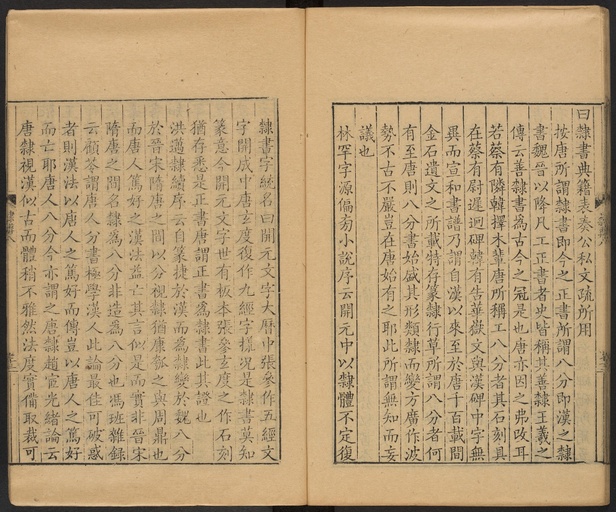 曰隸書典籍表奏公私文疏所用
按唐所謂隸書即今之正書所謂八分即漢之隸
書魏晉以降凡工正書者史皆稱其善隸王羲之
傳云善隸書為古今之冠是也唐亦因之弗改耳
若蔡有隣韓擇木輩唐所稱工八分者其石刻具
在蔡有尉遲迥碑韓有告華嶽文與漢碑中字無
異而宣和書譜乃謂自漢以來至於唐千百載間
金石遺文之所載特存篆隸行草所謂八分者何
有至唐則八分書始盛其形類隸而變方廣作波
勢不古不嚴豈在唐始有之耶此所謂無知而妄
議也
林罕字源偏旁小說序云開元中以隸體不定復
隸書字統名曰開元文字大曆中張參作五經文
字開成中唐玄度復作九經字樣況是隸書莫知
篆意今開元文字世有板本張參玄度之作石刻
猶存悉是正書唐謂正書為隸書此其證也
洪邁隸續序云自篆捷於漢而為隸變於魏八分
於晉宋隋唐之間以分視隸猶康瓠之與周鼎也
而唐人篤好之漢法益亡其言似是而實非晉宋
隋唐之間名隸為八分非造為八分也馮班雜錄
云顧苓謂唐人分書極學漢人此論最佳可破惑
者則漢法以唐人之篤好而傳豈以唐人之篤好
而亡耶唐人八分今亦謂之唐隸趙宧光緒論云
唐隸視漢似古而體稍不雅然法度實備取裁可